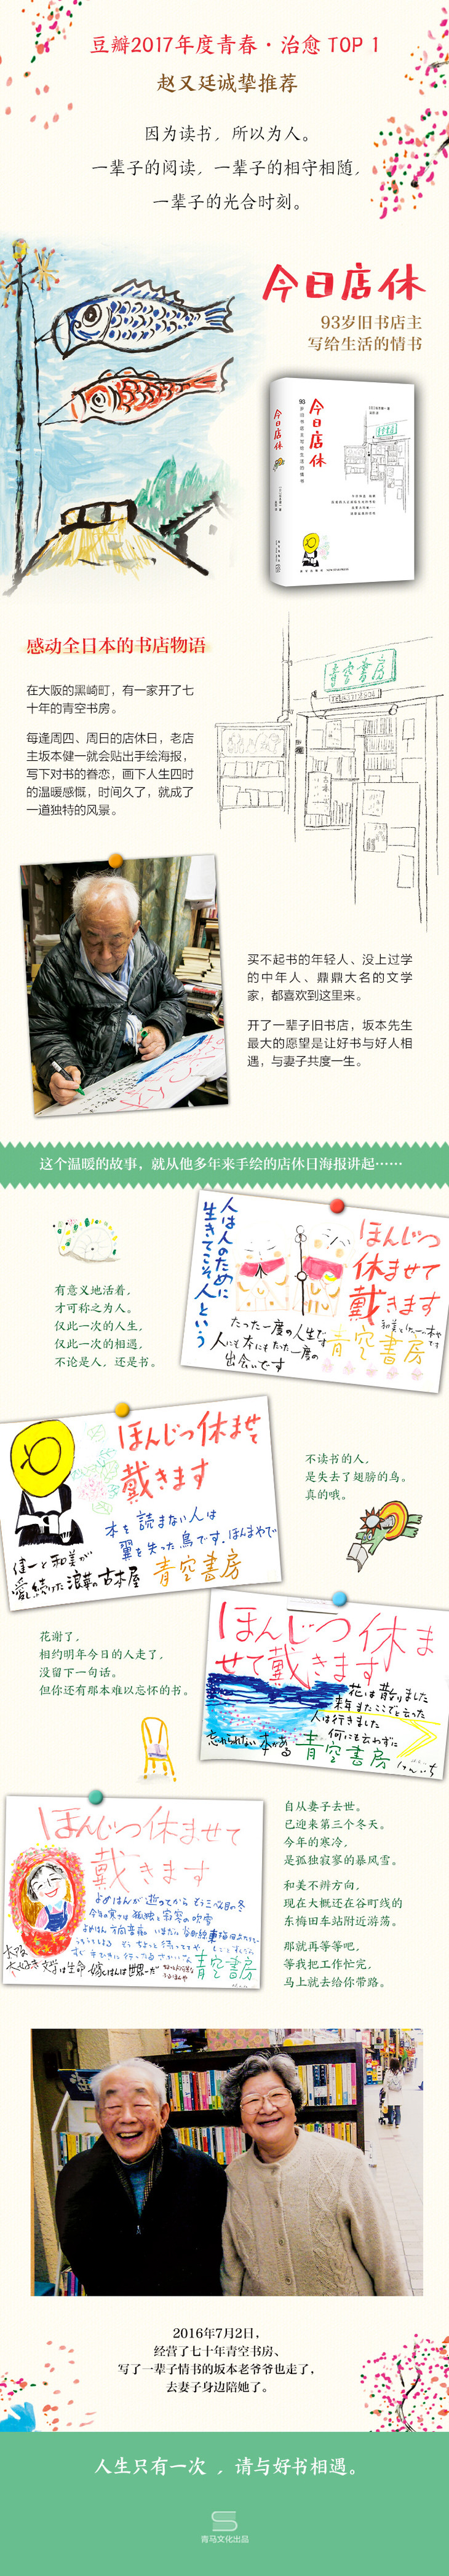 豆瓣2017年度青春·治愈 TOP 1
赵又廷诚挚推荐
因为读书，所以为人。
一辈子的阅读，一辈子的相守相随，
一辈子的光合时刻。
今日店休
93岁旧书店主
写给生活的情书
今日店休
93岁旧书店主写给生活的情书
今日店休
感动全日本的书店物语
在大阪的黑崎町，有一家开了七
十年的青空书房。
每逢周四、周日的店休日，老店
主坂本健一就会贴出手绘海报，
写下对书的眷恋，画下人生四时
的温暖感慨，时间久了，就成了
一道独特的风景。
青空書房
买不起书的年轻人、没上过学
的中年人、鼎鼎大名的文学
家，都喜欢到这里来。
开了一辈子旧书店，坂本先生
最大的愿望是让好书与好人相
遇，与妻子共度一生。
这个温暖的故事，就从他多年来手绘的店休日海报讲起……
有意义地活着，
才可称之为人。
仅此一次的人生，
仅此一次的相遇，
不论是人，还是书。
人は人のために
生きてこそ人という
ほんじつ
休ませて
戴きます
たった一度の人生です
人にも本にもたった一度の
出会いです
青空書房
ほんじつ休ませて
戴きます
本を読まない人は
翼を失った鳥です.ほんまやで
健一と和美が
愛し続けた浪華の古本屋
青空書房
不读书的人，
是失去了翅膀的鸟。
真的哦。
花谢了，
相约明年今日的人走了，
没留下一句话。
但你还有那本难以忘怀的书。
ほんじつ休ま
せて戴きます
花は散りました
来年またここでと言った
人は行きました
何にも言わずに
忘れられない本がある
青空書房
けんいち
ほんじつ休ませて
戴きます
よめはんが逝ってからもう三べん目の冬
今年の寒さは孤独と寂寞の吹雪
青空書房
自从妻子去世。
已迎来第三个冬天。
今年的寒冷，
是孤独寂寥的暴风雪。
和美不辨方向，
现在大概还在谷町线的
东梅田车站附近游荡。
那就再等等吧，
等我把工作忙完，
马上就去给你带路。
2016年7月2日，
经营了七十年青空书房、
写了一辈子情书的坂本老爷爷也走了，
去妻子身边陪她了。
人生只有一次，请与好书相遇。
青马文化出品